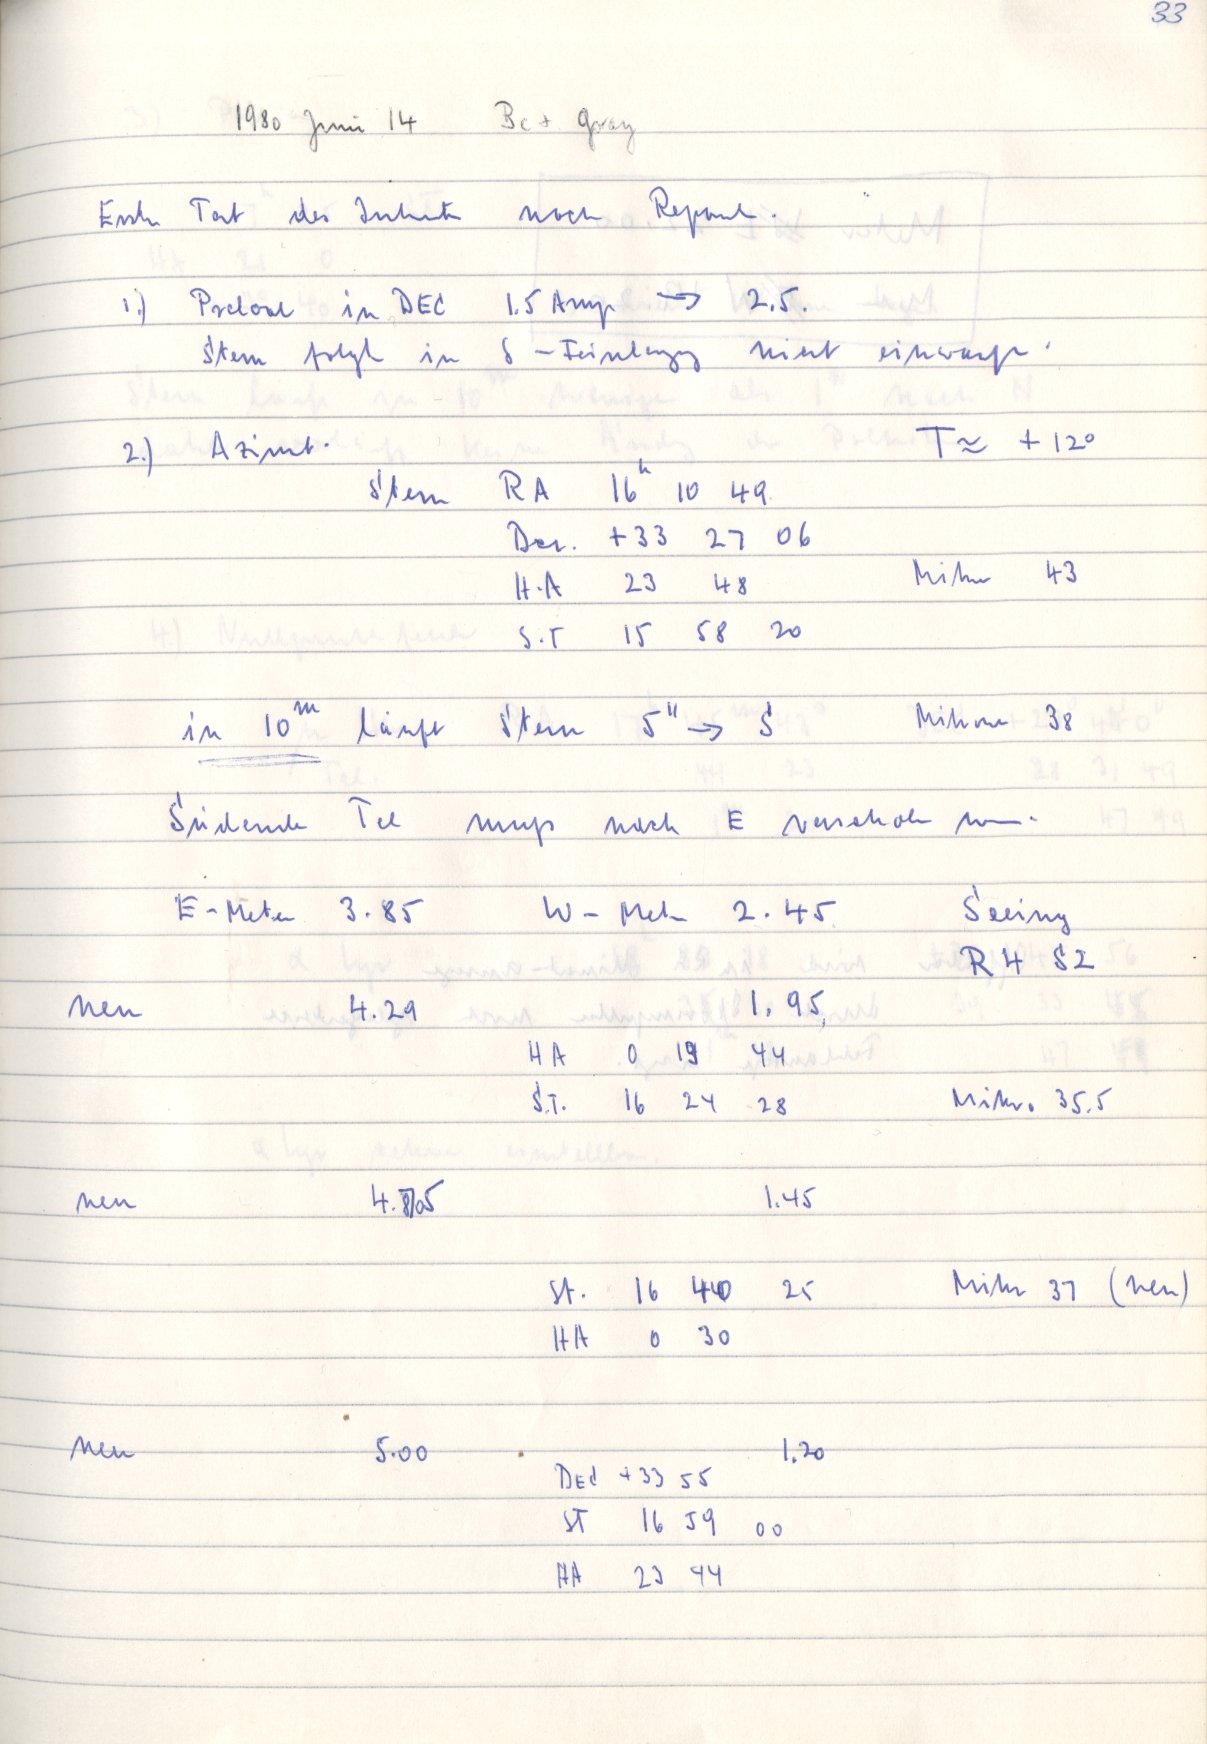 33
1980 Juni 14 Bc + Gray
Erster Test des Instruments nach Reparatur.
1.) Preload in DEC 1.5 Amp → 2.5.
Stern folgt in δ - nicht einwandfr.
2.) Azimut. T ≈ +12°
Stern RA 16h 10 49
Dec. +33 27 06
H.A 23 48 Mikr 43
S.T 15 58 20
in 10m läuft Stern 5" → S Mikrom 38
Südende Tel muß nach E verschoben
E-Meter 3.85 W-Meter 2.45 Seeing
R4 S2
neu 4.29 1.95
HA 0 19 44
S.T. 16 24 28 Mikr. 35.5
neu 1.45
ST. 16 40 25 Mikr 37 (neu)
HA 0 30
neu 5.00 1.20
DEC +33 55
ST 16 59 00
HA 23 44